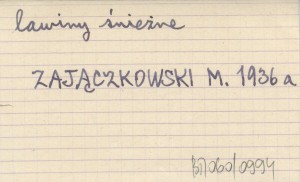 lawiny śnieżne
ZAJĄCZKOWSKI M. 1936 a
BT060/0994